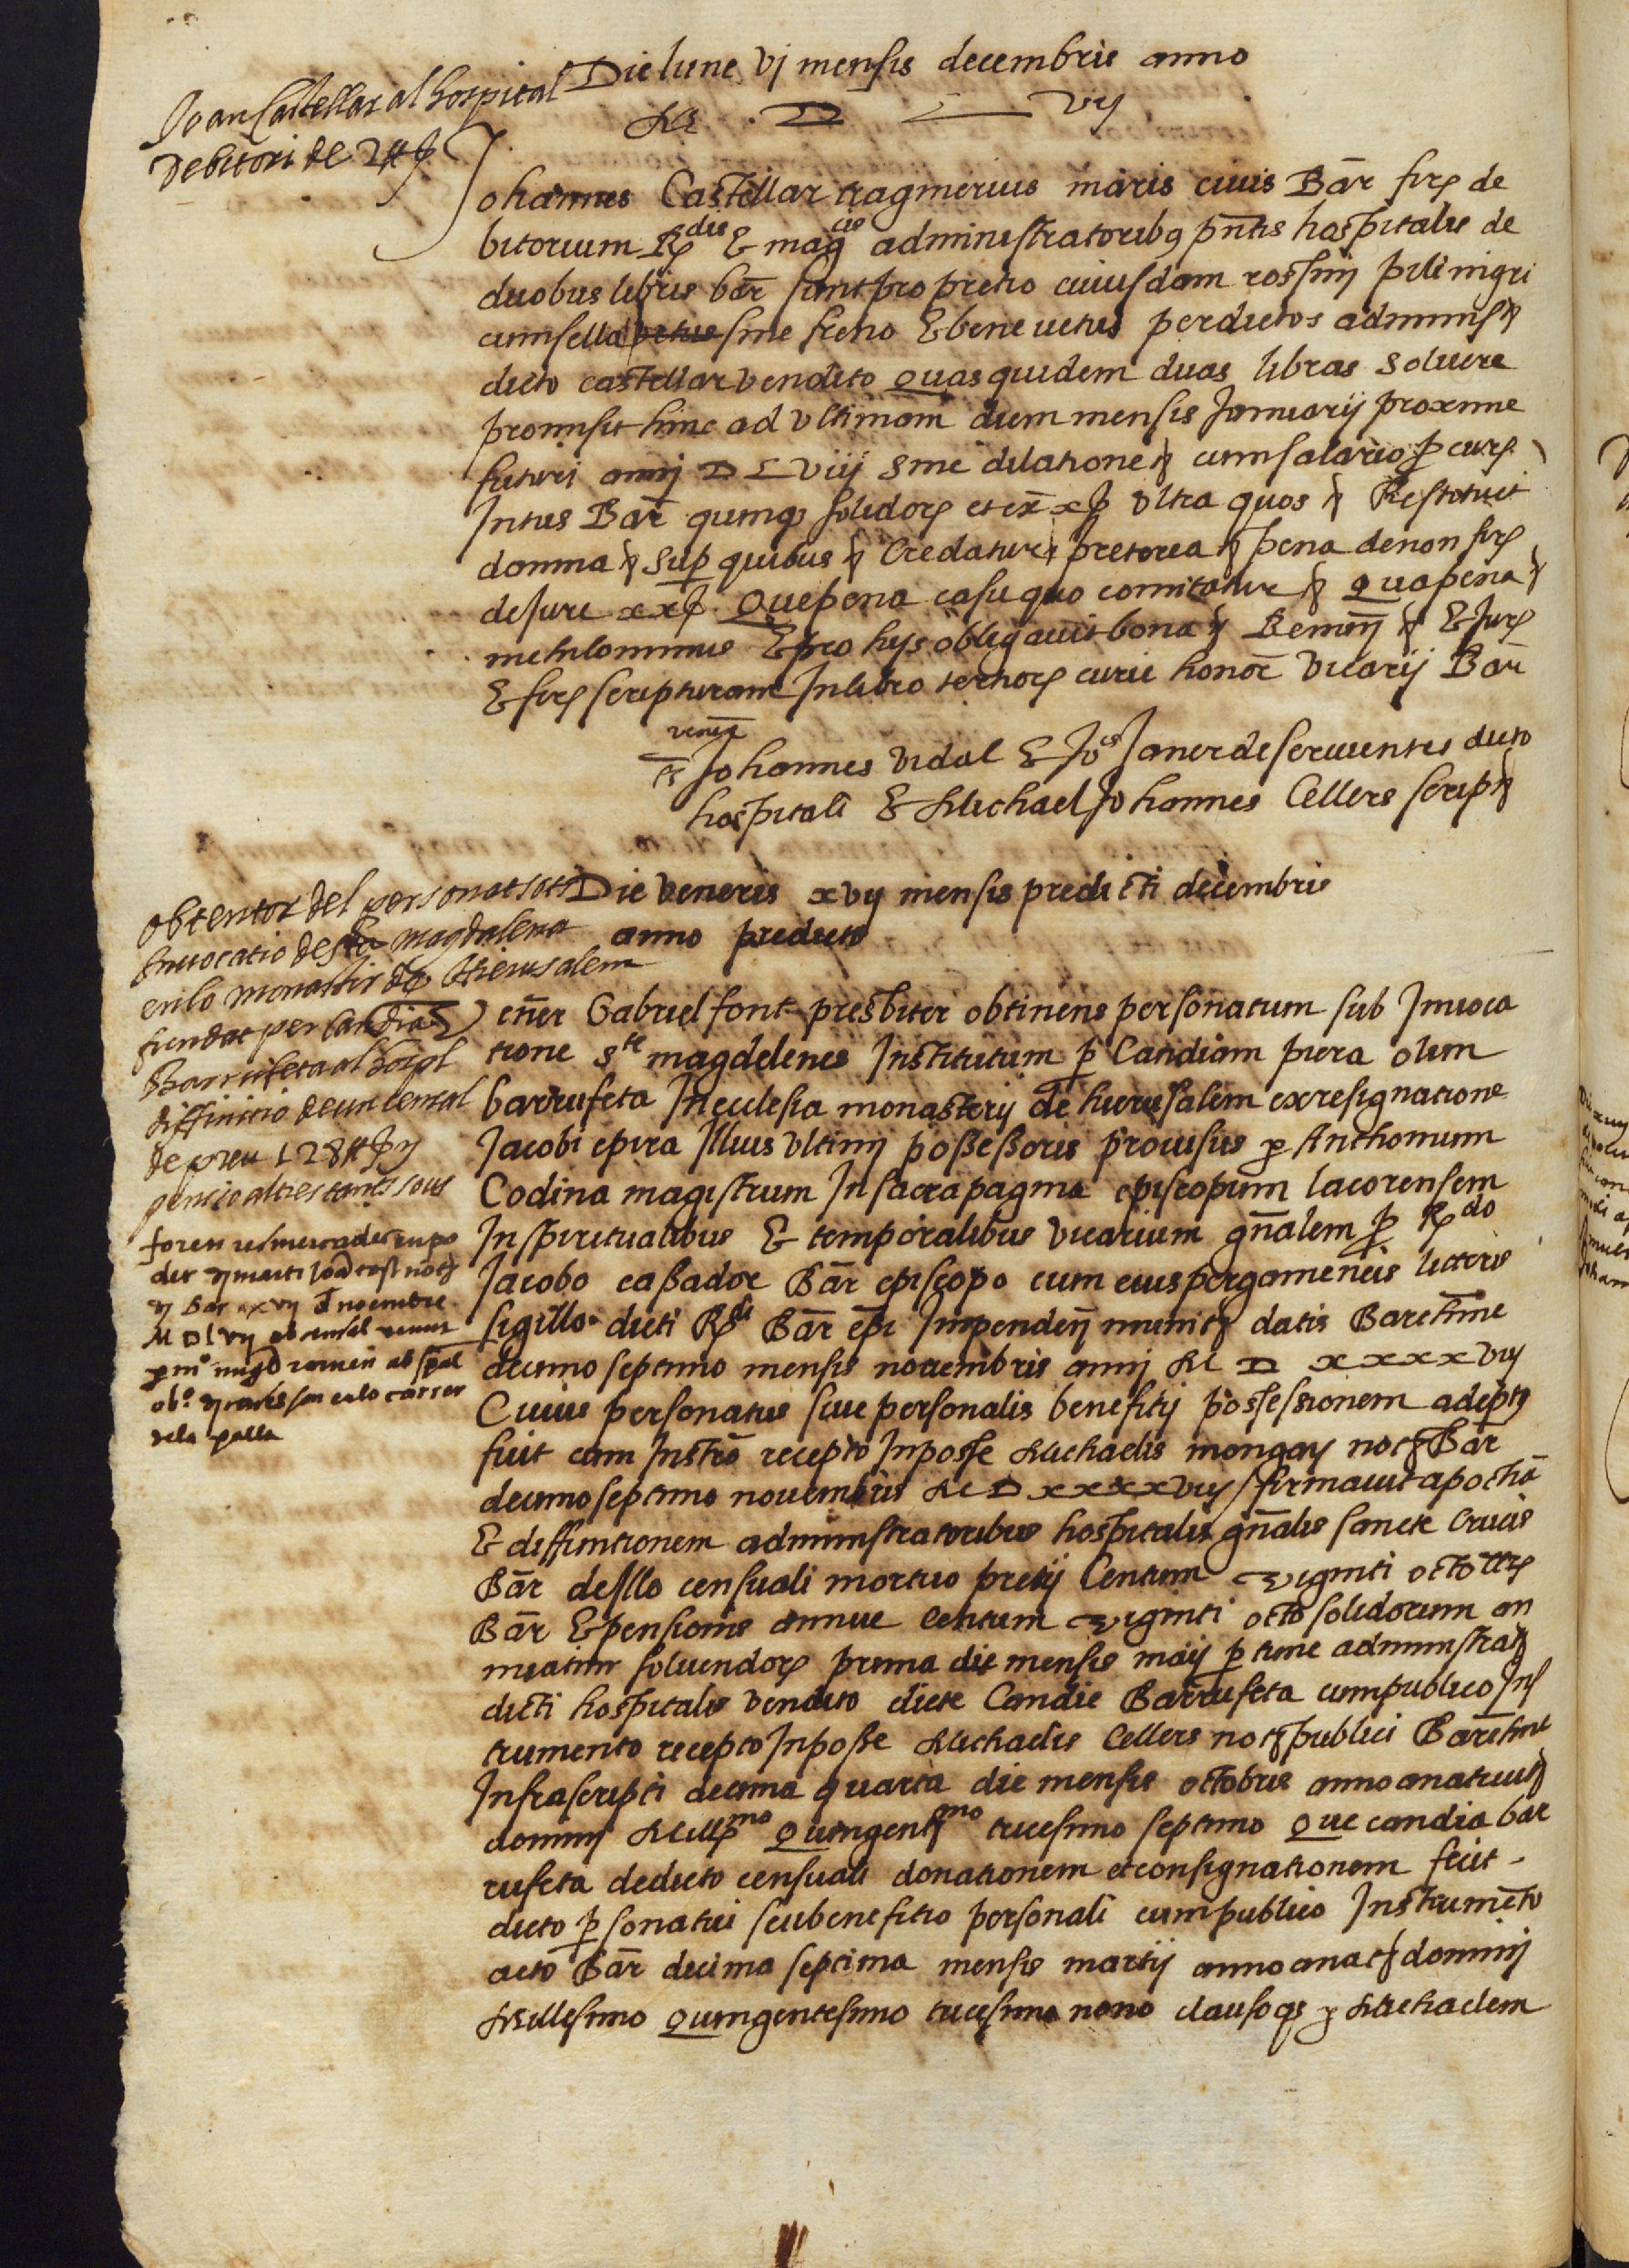 Joan Castellar al hospital
Debitori de 2 ₶
Die lune vj mensis decembris anno
M D L vij
Johannes Castellar traginerius maris civis Bar̄ fir de
bitorium Rdis & magcis administratoribꝫ pn̄tis hospitalis de
duobus libris bar̄ sunt pro pretio cuiusdam rossinj pili nigri
cum sella vetus sine freno & bene vetus per dictos administr
dicto castellar vendito Quasquidem duas libras solvere
promisit hinc ad ultimam diem mensis Januarij proxime
futuri annj D L viij sine dilatione cum salario p̱cur
Intus Bar̄ quinqꝫ solidor et ex̄ x ultra quos Restituet
damna sup̱ quibus Credatur pretorea pena de non fir
de jure xx Que pena casu quo comitatur Qua pena
nichilominus & pro hijs obligavit bona Renun̄ & Jur
& fir scripturam In libro tertior curie honor̄ vicarij Bar̄
ts Johannes vidal & Jos Janer de servientes dicto
hospitali & Michael Johannes Cellers script
obtentor del personat sots
Invocatio de sta magdalena
en lo monastir de Hierusalem
fundat per Candia
Barrufeta al hospl
diffinitio de un censal
de preu 128 ₶
pencio altres tants sous
Die veneris xvij mensis predicti decembris
anno predicto
Ven̄er Gabriel font presbiter obtinens personatum sub Invoca
tione ste magdelenes Institutum p̱ Candiam piera olim
barrufeta In ecclesia monasterij de hierusalem ex resignatione
Jacobi epira Illius ultimj possessoris provisus p̱ Anthonium
Codina magistrum In sacra pagina episcopum lacorensem
In spiritualibus & temporalibus vicarium gn̄alem p̱ Rdo
Jacobo cassador Bar̄ episcopo cum eius pergameneis litteris
sigillo dicti Rdi Bar̄ epi Impenden̄ munit datis Barchn̄e
decimo septimo mensis novembris annj M D xxxxvij
Cuius personatus sive personalis benefitij possessionem adeptꝫ
fuit cum Instr̄o recepto In posse Michaelis mongay not Bar̄
decimo septimo novembris M D xxxxvij firmavit apochā
& diffinitionem administratoribus hospitalis gn̄alis sancte Crucis
Bar̄ de Illo censuali mortuo pretij Centum viginti octo llr
Bar̄ & pensionis annue Centum viginti octo solidorum an
nuatim solvendor prima die mensis maij p̱ tunc administrat
dicti hospitalis vendito dicte Candie Barrufeta cum publico Ins
trumento recepto In posse Michaelis Cellers not publici Barchn̄e
Infrascripti decima quarta die mensis octobris anno a nativit
dominj Millmo Quingentmo tricesimo septimo Que candia bar
rufeta de dicto censuali donationem et consignationem fecit
dicto p̱sonatui seu benefitio personali cum publico Instrumēto
acto Bar̄ decima septima mensis martij anno a nat dominj
Millesimo Quingentesimo tricesimo nono clausoqꝫ p̱ Michaelem